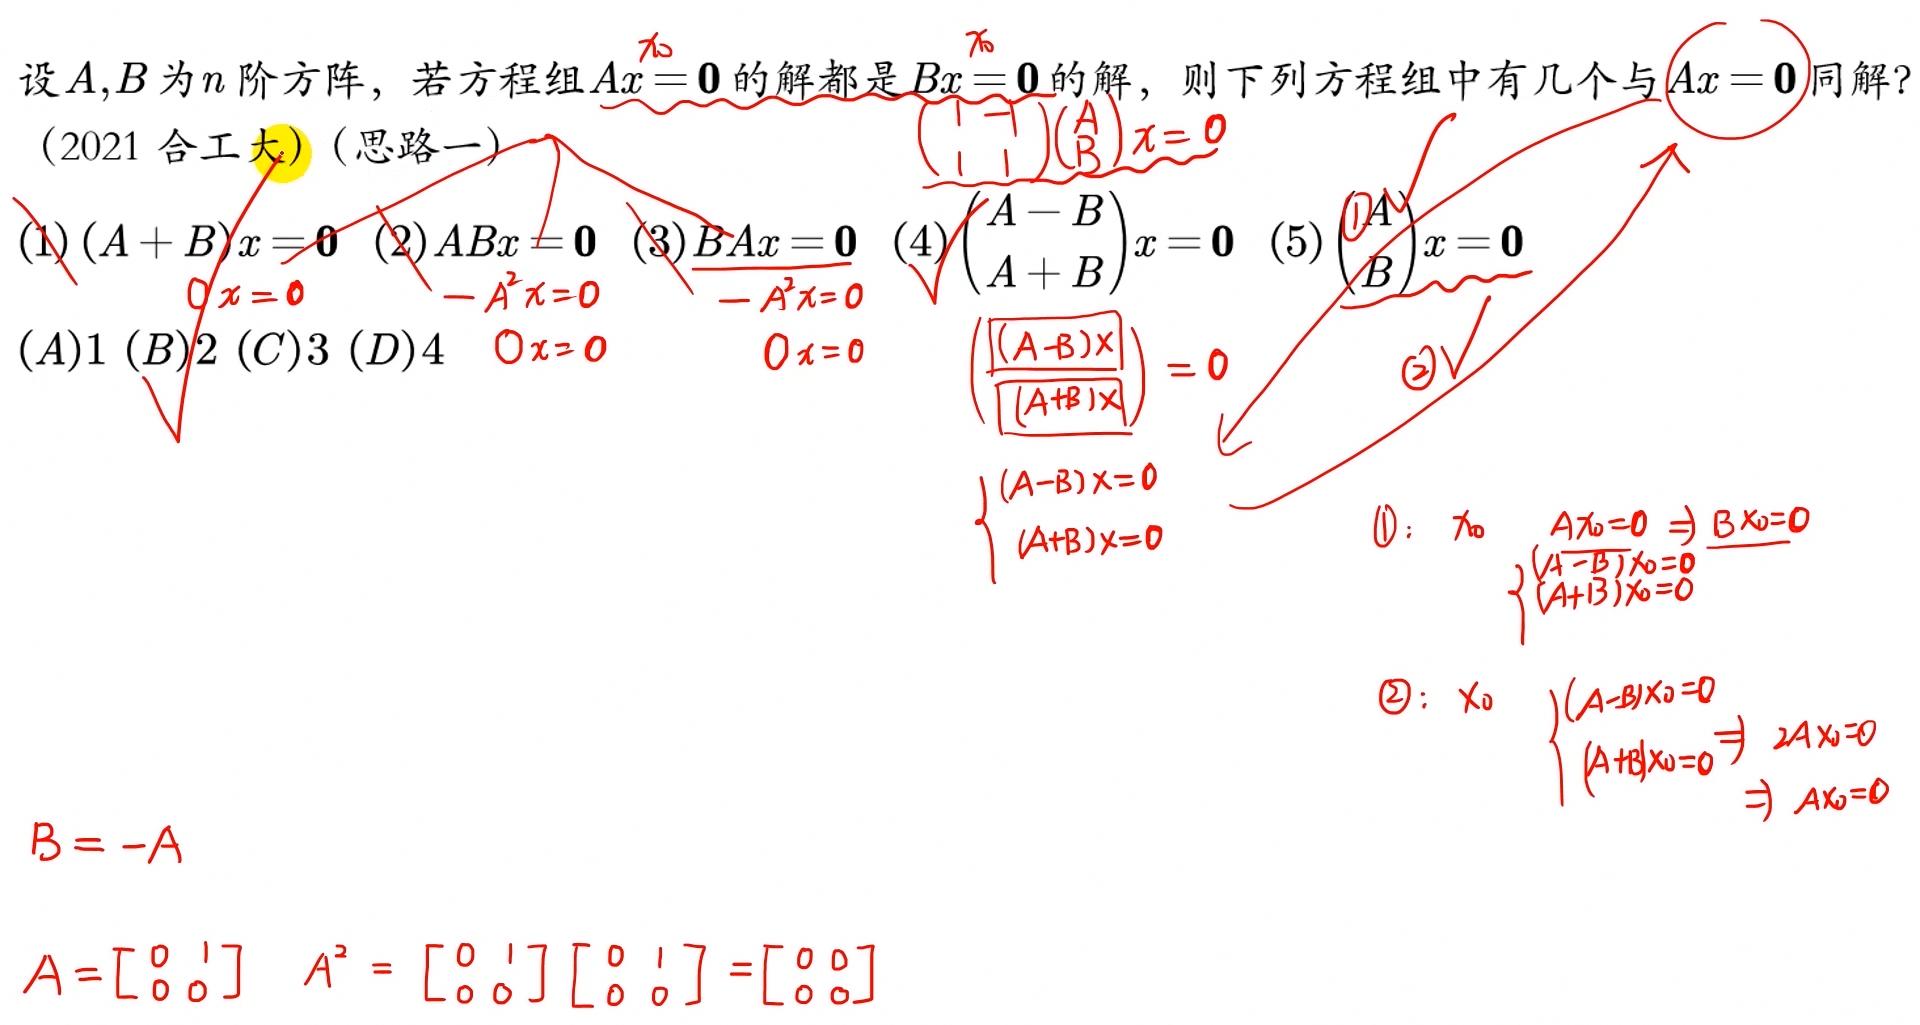 x₀ x₀
设A,B为n阶方阵，若方程组Ax=0的解都是Bx=0的解，则下列方程组中有几个与Ax=0同解？
(1 -1; 1 1)(A; B)x=0
（2021 合工大）（思路一）
(1)(A+B)x=0 (2)ABx=0 (3)BAx=0 (4)(A-B; A+B)x=0 (5)(A; B)x=0
①
0x=0 -A²x=0 -A²x=0
(A)1 (B)2 (C)3 (D)4
0x=0 0x=0
((A-B)x; (A+B)x)=0
②
{(A-B)x=0
(A+B)x=0
①: x₀ Ax₀=0 ⇒ Bx₀=0
{(A-B)x₀=0
(A+B)x₀=0
②: x₀ {(A-B)x₀=0
(A+B)x₀=0 ⇒ 2Ax₀=0
⇒ Ax₀=0
B=-A
A=[0 1; 0 0] A²=[0 1; 0 0][0 1; 0 0]=[0 0; 0 0]